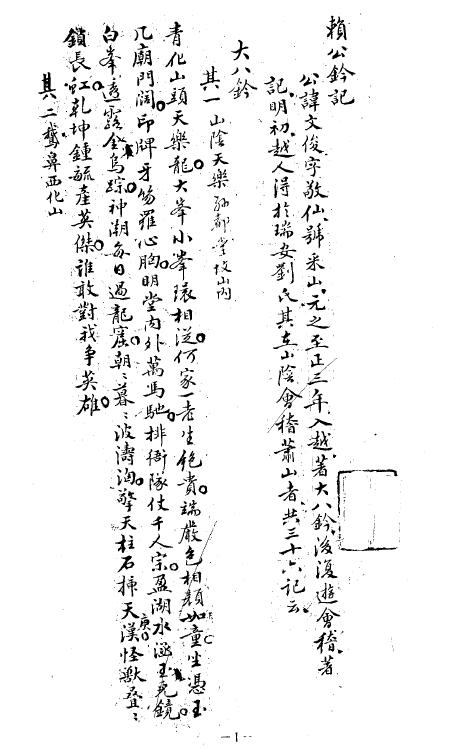 賴公鈐記
公諱文俊字敬仙號禾山元之至正三年入越著大八鈐後復遊會稽著
記明初越人得於瑞安劉氏其在山陰會稽蕭山者共三十六記云
大八鈐
其一山陰天樂 都堂坟山內
青化山頭天樂龍大峯小峯環相從何家一老生飽貴端嚴色相顏如童坐憑玉
几廟門闊印牌牙笏羅心胸明堂內外萬馬馳排衙隊仗千人宗盈湖水涵玉兔鏡
白峯透露金烏踪神潮每日過龍窟朝々暮々波濤洶擎天柱石插天漢怪獸庚叠々
鎖長虹乾坤鍾毓產英傑誰敢對我爭英雄
其二鵞鼻西化山
-1-